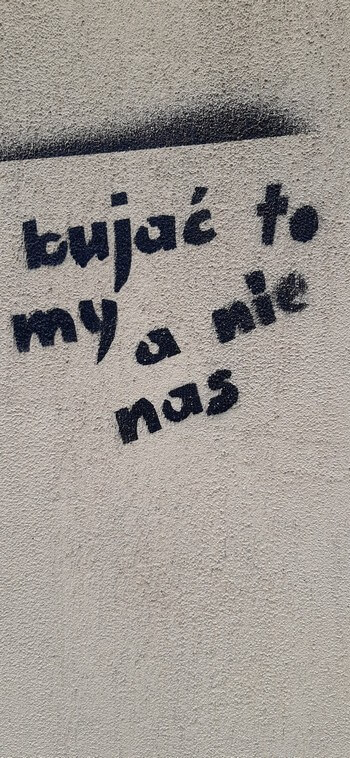 kujać to
my a nie
nas